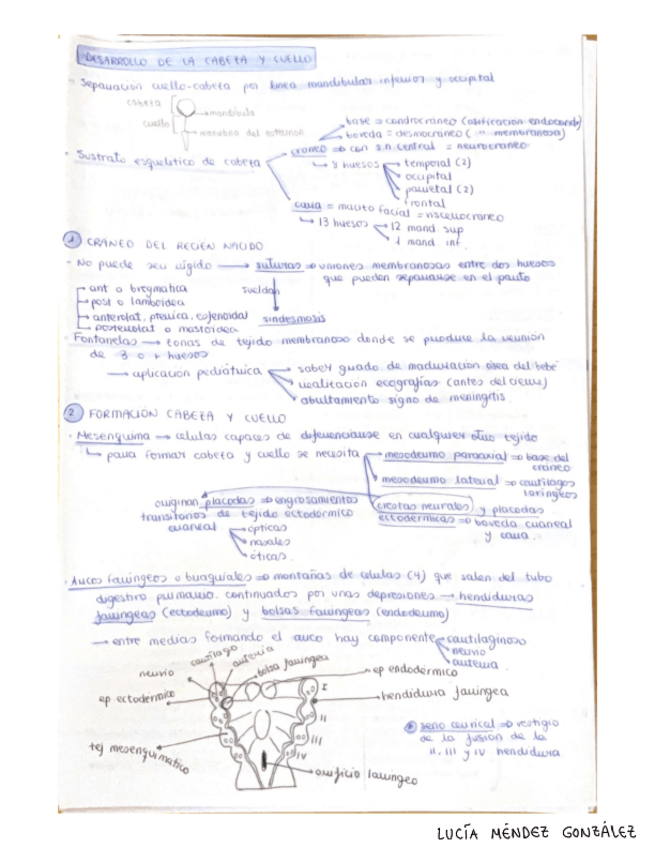 DESARROLLO DE LA CABEZA Y CUELLO
- Separación cuello-cabeza por linea mandibular inferior y occipital
cabeza
mandibula
cuello
manubrio del esternon
base => condrocráneo (osificación endocondr)
boveda = desmocraneo ( " membranosa)
craneo => con s.n. central = neurocraneo
- Sustrato esquelético de cabeza
↳ 8 huesos
temporal (2)
occipital
parietal (2)
frontal
cara = macizo facial = viscerocraneo
↳ 13 huesos
12 mand. sup
1 mand. inf.
1 CRANEO DEL RECIEN NACIDO
- No puede ser rígido → suturas => uniones membranosas entre dos huesos
que pueden separarse en el parto
ant o bregmatica
sueldan
post o lambdidea
anterolat, pterica, esfenoidal
sindesmosis
posterolat o mastoidea
Fontanelas → zonas de tejido membranoso donde se produce la reunion
de 3 o + huesos
→ aplicación pediátrica
saber grado de maduracion osea del bebe
realización ecografías (antes del cierre)
abultamiento signo de meningitis
2 FORMACION CABEZA Y CUELLO
- Mesenquima → celulas capaces de diferenciarse en cualquier otro tejido
↳ para formar cabeza y cuello se necesita
mesodermo paraaxial => base del
craneo
mesodermo lateral => cartilagos
laringeos
originan placodas => engrosamientos
crestas neurales y placodas
transitorios de tejido ectodérmico
ectodermicas => boveda craneal
y cara.
craneal
ópticas
nasales
óticas.
- Arcos faringeos o braquiales => montañas de celulas (4) que salen del tubo
digestivo primario. continuados por unas depresiones → hendiduras
faringeas (ectodermo) y bolsas faringeas (endodermo)
→ entre medias formando el arco hay componente
cartilaginoso
nervio
arteria
cartilago
arteria
bolsa faringea
nervio
ep endodérmico
ep ectodermico
I
hendidura faringea
II
III
IV
tej mesenquimatico
orificio laringeo
seno cervical => vestigio
de la fusion de la
II, III y IV hendidura
LUCÍA MÉNDEZ GONZÁLEZ